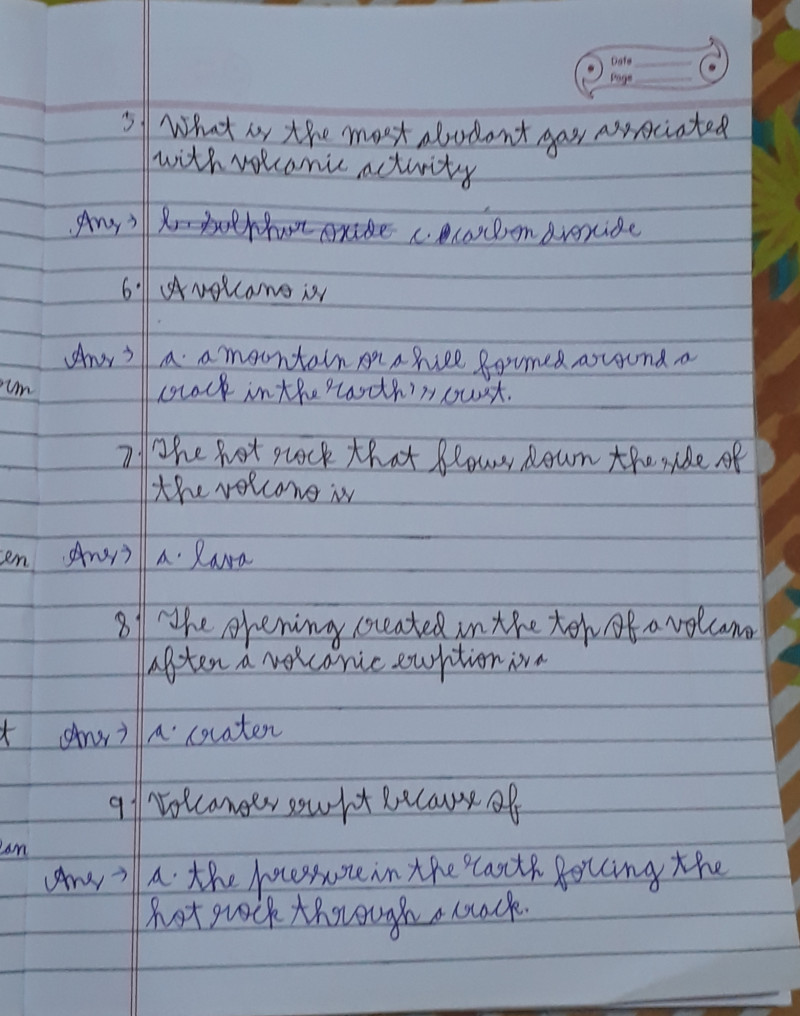 Date
Page
5. What is the most abudant gas associated
with volcanic activity
Ans → b. Sulphur oxide c. carbon dioxide
6. A volcano is
Ans → a. a mountain or a hill formed around a
crack in the earth's crust.
7. The hot rock that flows down the side of
the volcano is
Ans → a. lava
8. The opening created in the top of a volcano
after a volcanic eruption is a
Ans → a. crater
9. Volcanoes erupt because of
Ans → a. the pressure in the earth forcing the
hot rock through a crack.
en
t
an